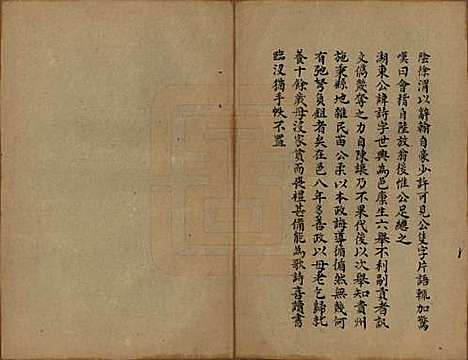 陰徐渭以辭翰自豪少許可見公隻字片語輒加驚
嘆曰會稽自陸放翁後惟公足繼之
湖東公諱詩字世興為邑庠生六舉不利副貢者訊
文偽幾奪之力自陳讓乃不果代後以次舉知貴州
施秉縣地雜民苗公柔以本政誨導循循然無幾何
有弛弩負鉏者矣在邑八年多善政以母老乞歸託
養十餘歲母沒家貧而喪禮甚備能為歌詩喜讀書
臨沒猶手帙不置